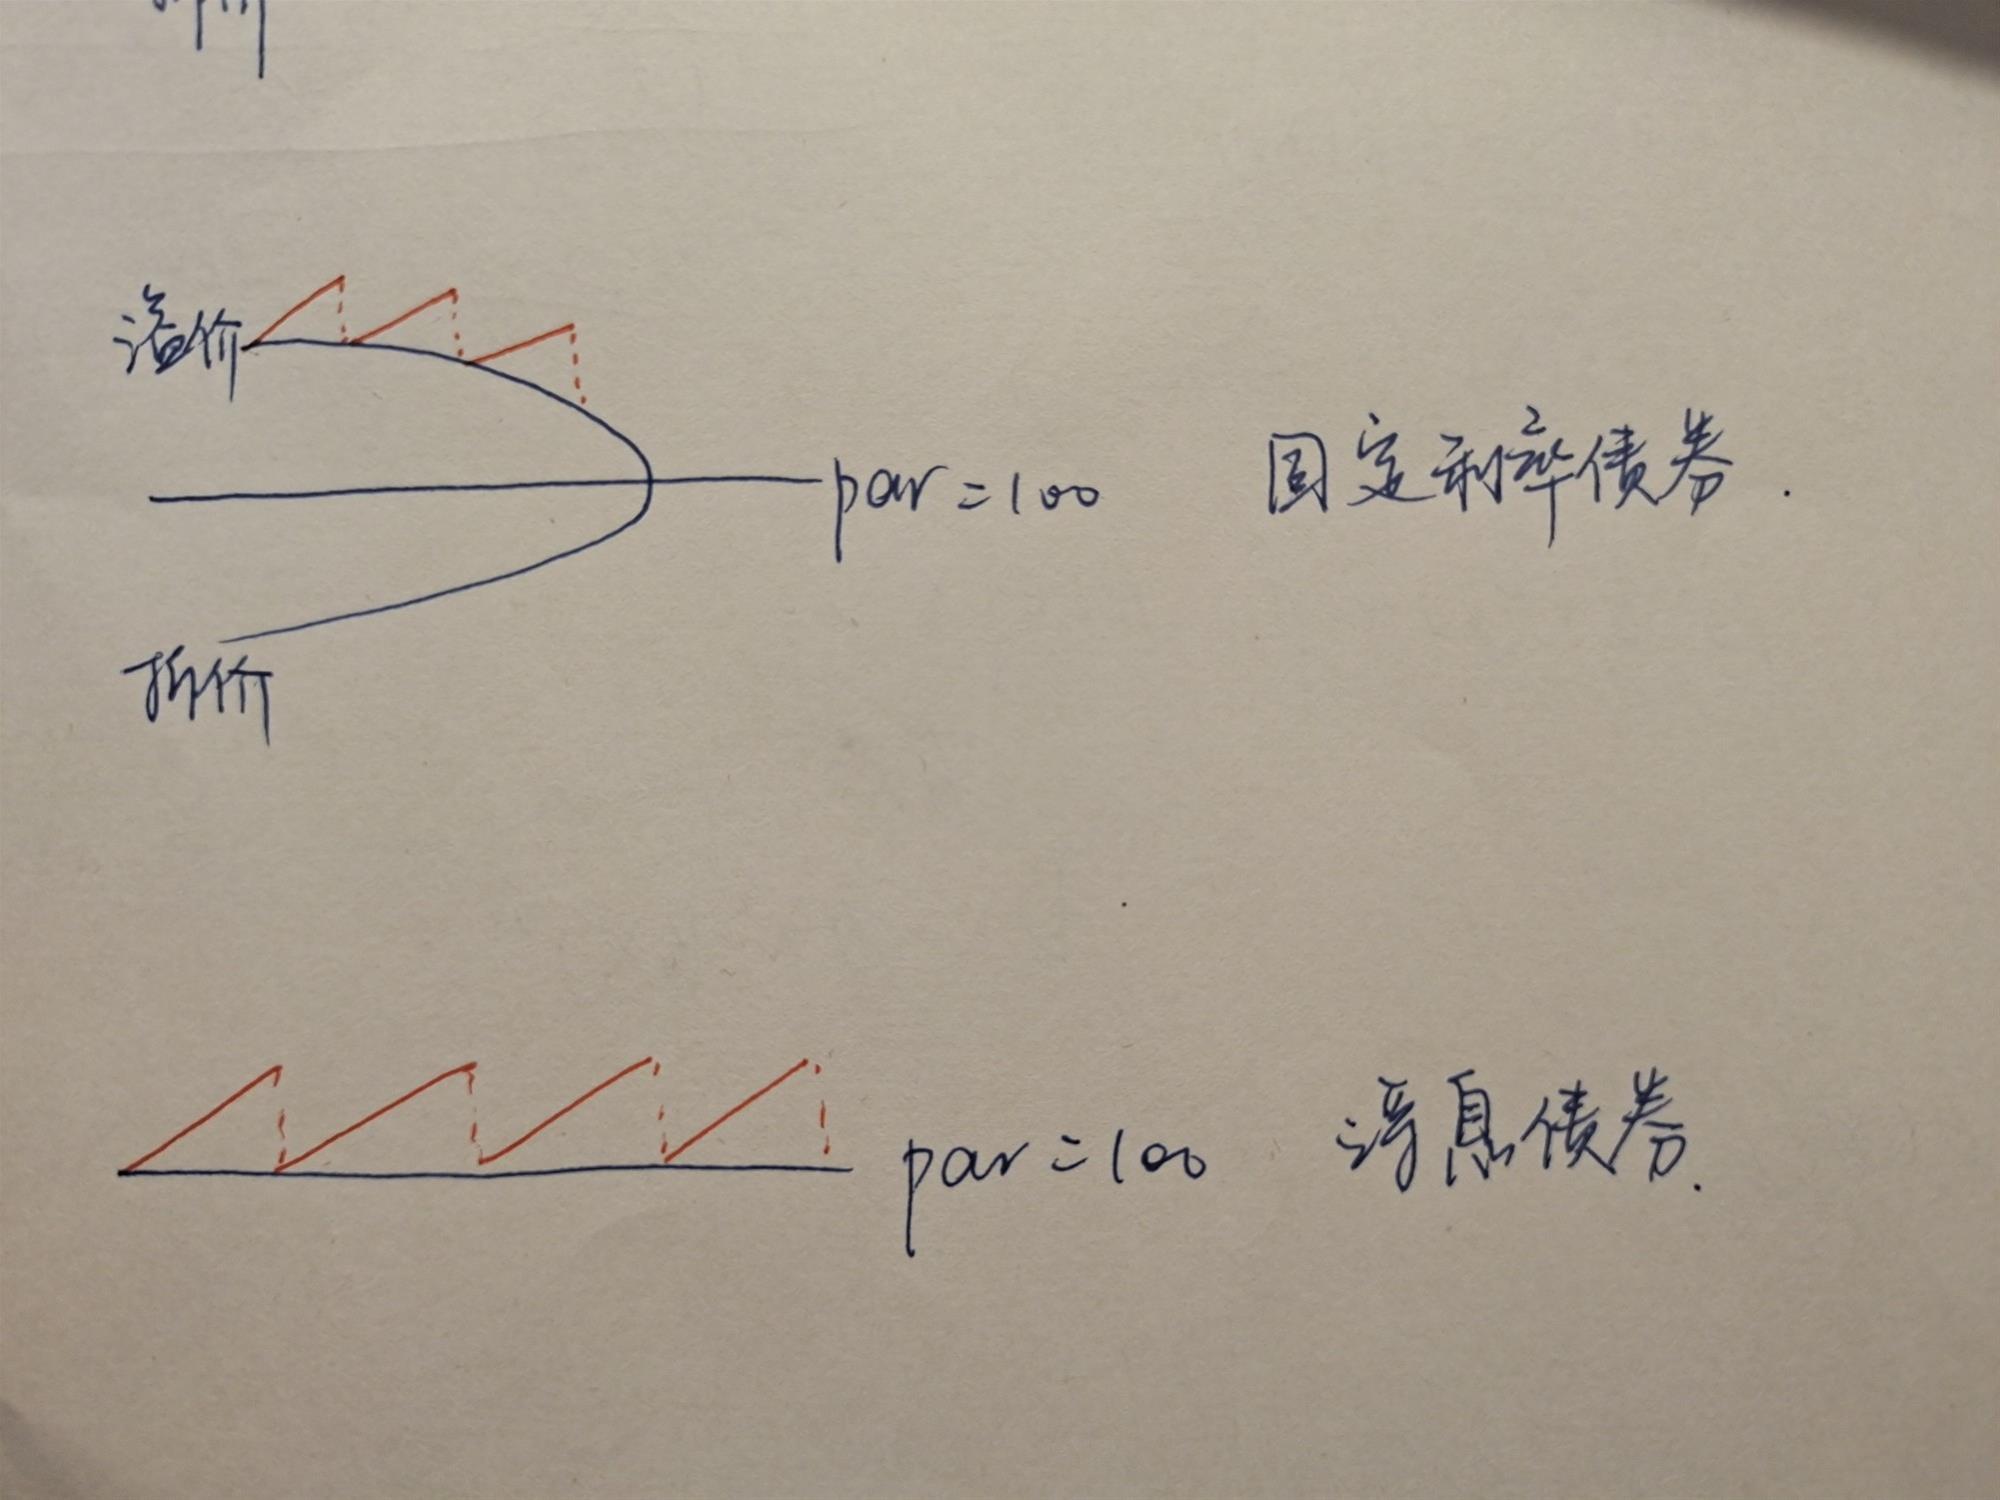 溢价
par=100 固定利率债券.
折价
par=100 浮息债券.